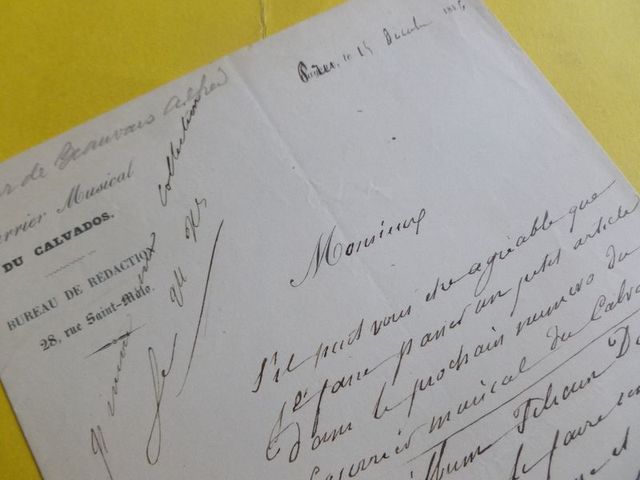 de Beauvais Alfred
rrier Musical
DU CALVADOS.
BUREAU DE RÉDACTION
28, rue Saint-Malo.
le 15 Décembre
collection
Monsieur
S'il peut vous être agréable que
je fasse passer un petit article
dans le prochain numéro du
Courrier musical du Calva
Album Félicien D
faire